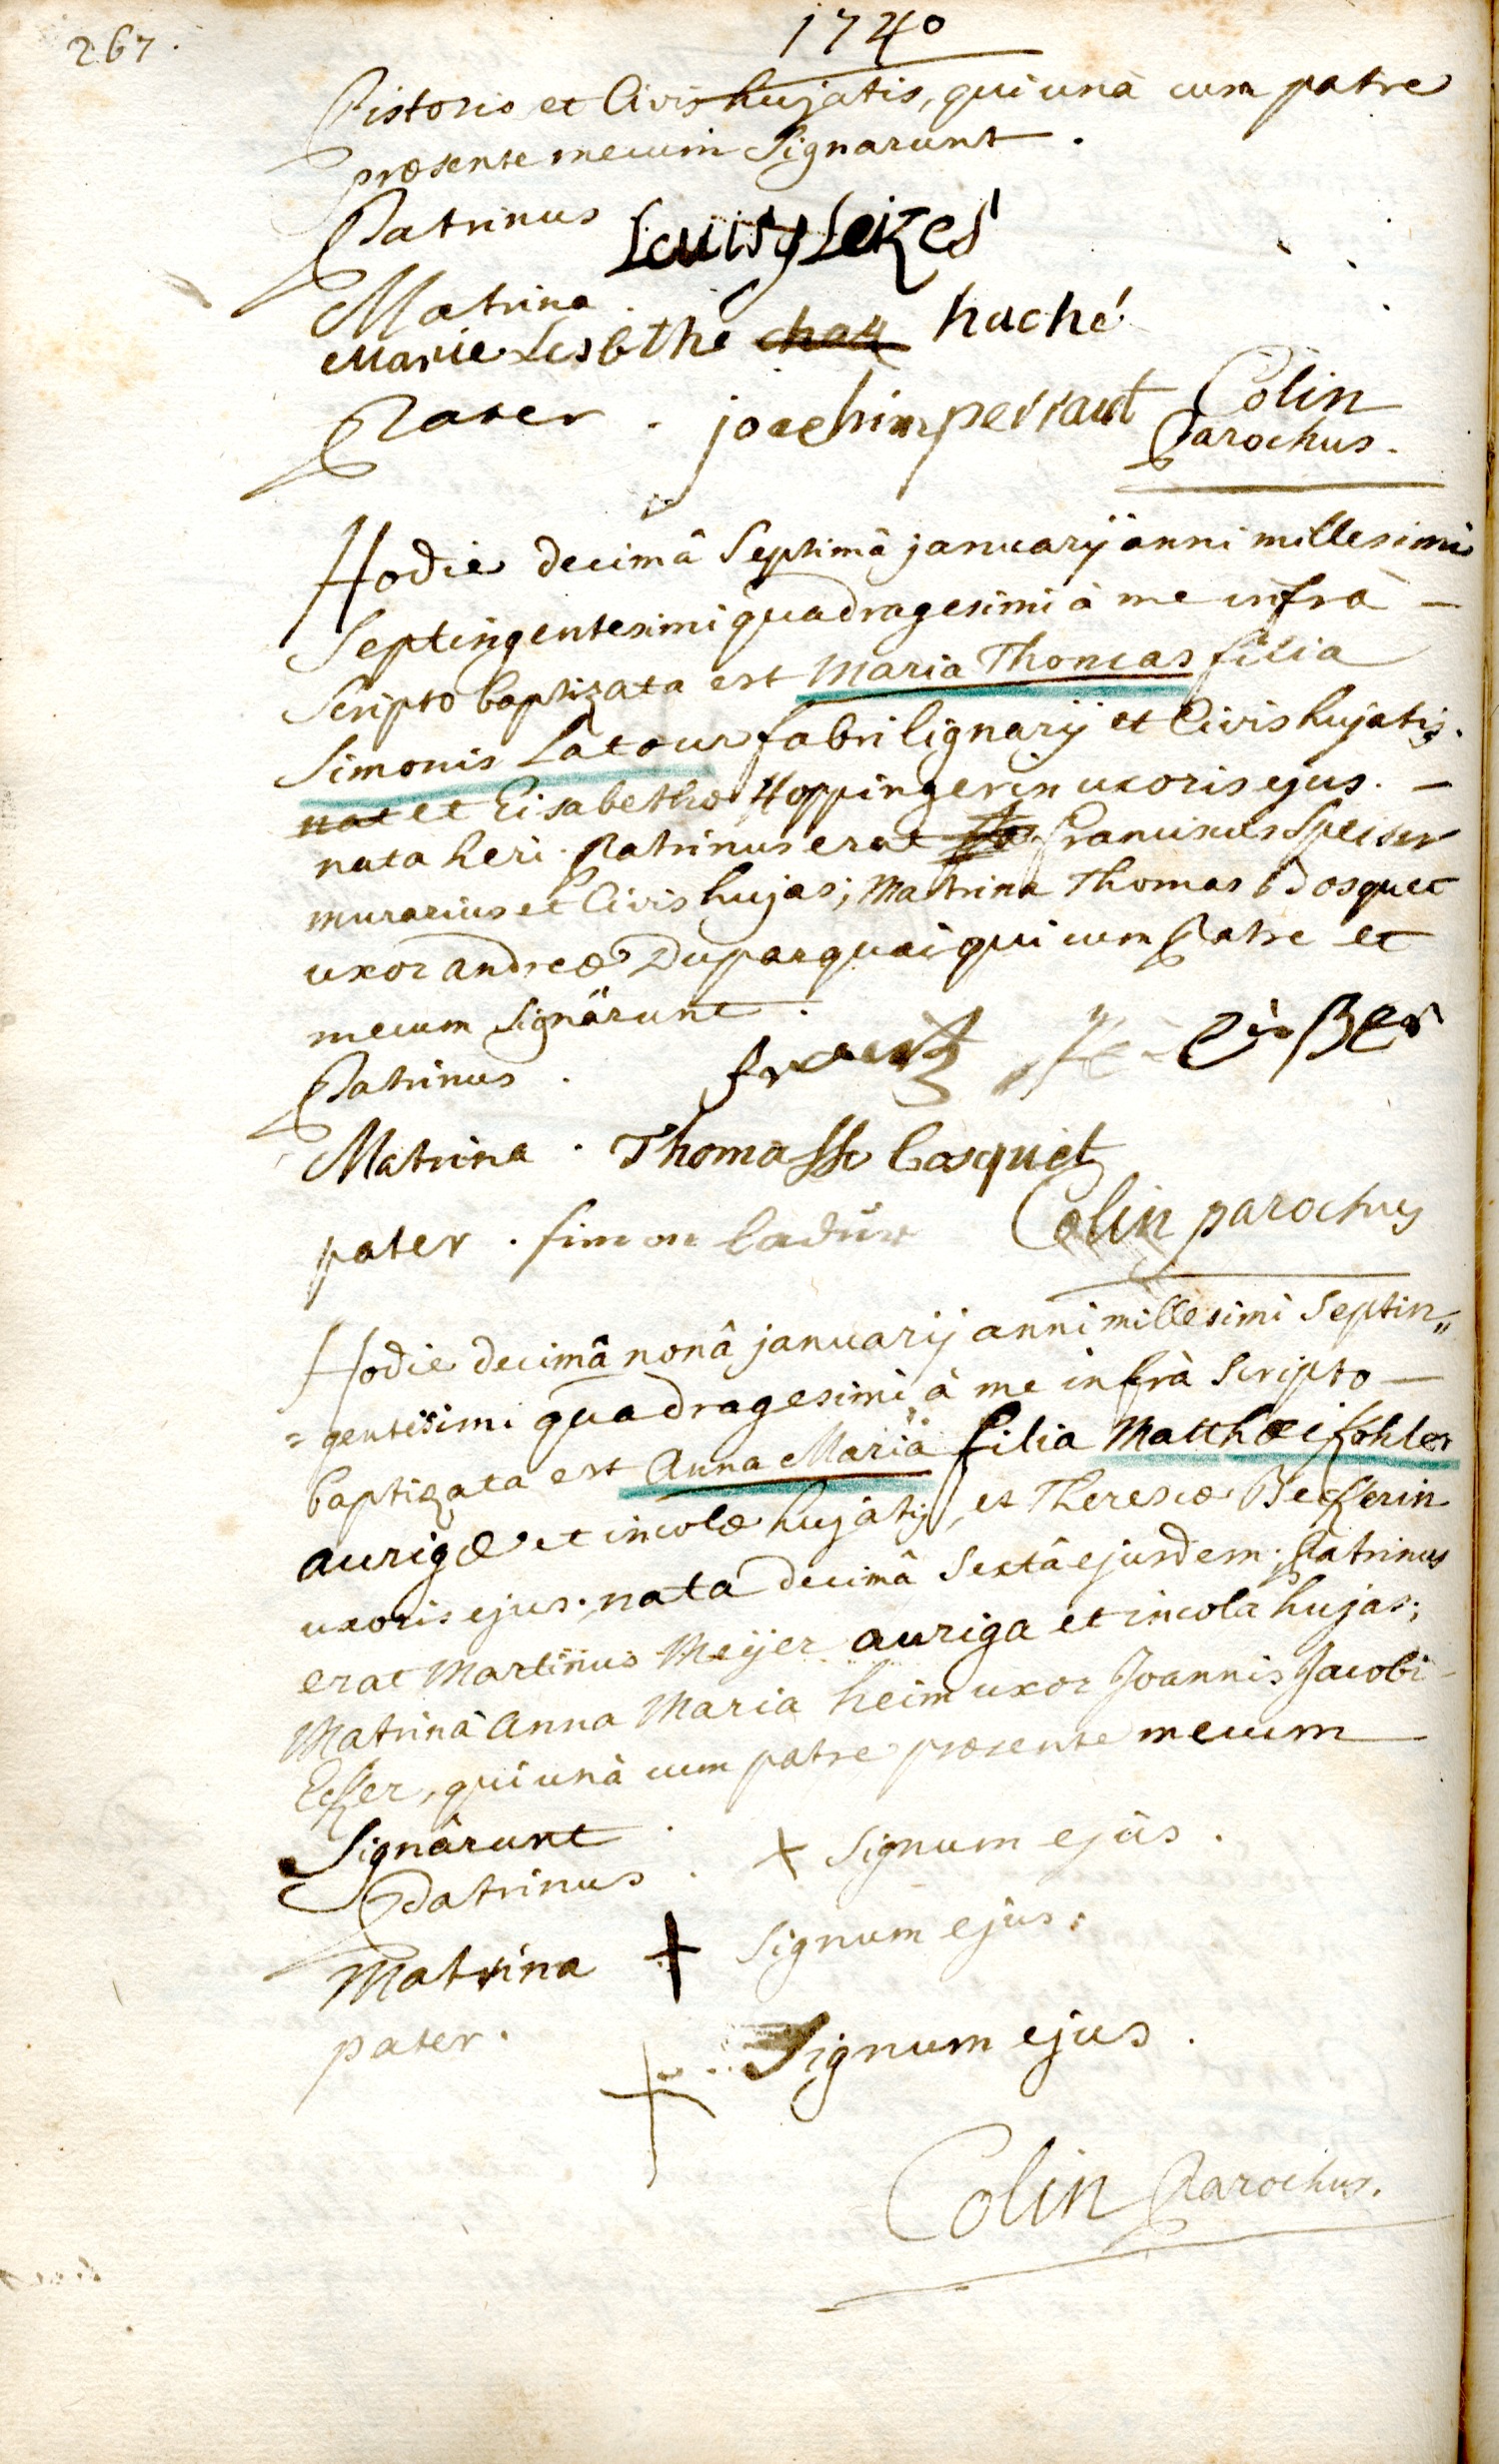 267.
1740
Pistoris et Civis hujatis, qui unà cum patre
præsente mecum Signarunt.
Patrinus
Matrina.
Marie Lisbthe huché
Pater. joachim perraut Colin
Parochus.
Hodie decimâ Septimâ januarij anni millesimi
Septingentesimi quadragesimi à me infrà —
Scripto baptizata est Maria Thomas filia
Simonis Latour fabri lignarij et Civis hujatis.
et Elisabethæ Hoppingerin uxoris ejus. —
nata heri. Patrinus erat Franciscus Speisser
murarius et Civis hujas; Matrina Thomas Bosquet
uxor andreæ Duparquai qui cum Patre et
mecum Signârunt.
Patrinus. frantz
Matrina. Thomasse bosquet
pater. simon ladur Colin parochus
Hodie decimâ nonâ januarij anni millesimi Septin„
=gentesimi quadragesimi à me infrà Scripto —
baptizata est Anna Maria filia Matthæi Kohler
aurigæ et incolæ hujatis, et Theresiæ Beckerin
uxoris ejus. nata decimâ Sextâ ejusdem; Patrinus
erat Martinus Meijer auriga et incola hujas;
Matrina Anna Maria heim uxor Joannis Jacobi
Ecker, qui unà cum patre præsente mecum
Signârunt.
Patrinus. + Signum ejus.
Matrina + Signum ejus.
pater. + Signum ejus.
Colin Parochus.